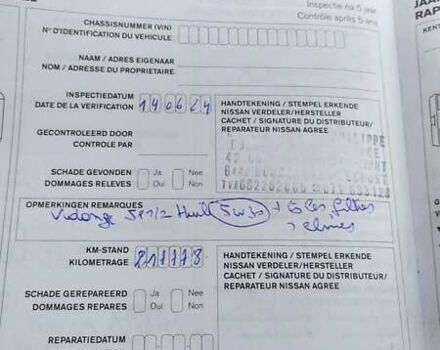 Inspectie na 5 jaar
Contrôle après 5 ans
CHASSISNUMMER (VIN)
N° D'IDENTIFICATION DU VEHICULE
NAAM / ADRES EIGENAAR
NOM / ADRESSE DU PROPRIETAIRE
INSPECTIEDATUM
DATE DE LA VERIFICATION 190624
HANDTEKENING / STEMPEL ERKENDE
NISSAN VERDELER/HERSTELLER
CACHET / SIGNATURE DU DISTRIBUTEUR/
REPARATEUR NISSAN AGREE
GECONTROLEERD DOOR
CONTROLE PAR
SCHADE GEVONDEN Ja Nee
DOMMAGES RELEVES Oui Non
OPMERKINGEN REMARQUES
Vidange 5w30 + filtres
KM-STAND
KILOMETRAGE 217778
HANDTEKENING / STEMPEL ERKENDE
NISSAN VERDELER/HERSTELLER
CACHET / SIGNATURE DU DISTRIBUTEUR/
REPARATEUR NISSAN AGREE
SCHADE GEREPAREERD Ja Nee
DOMMAGES REPARES Oui Non
REPARATIEDATUM